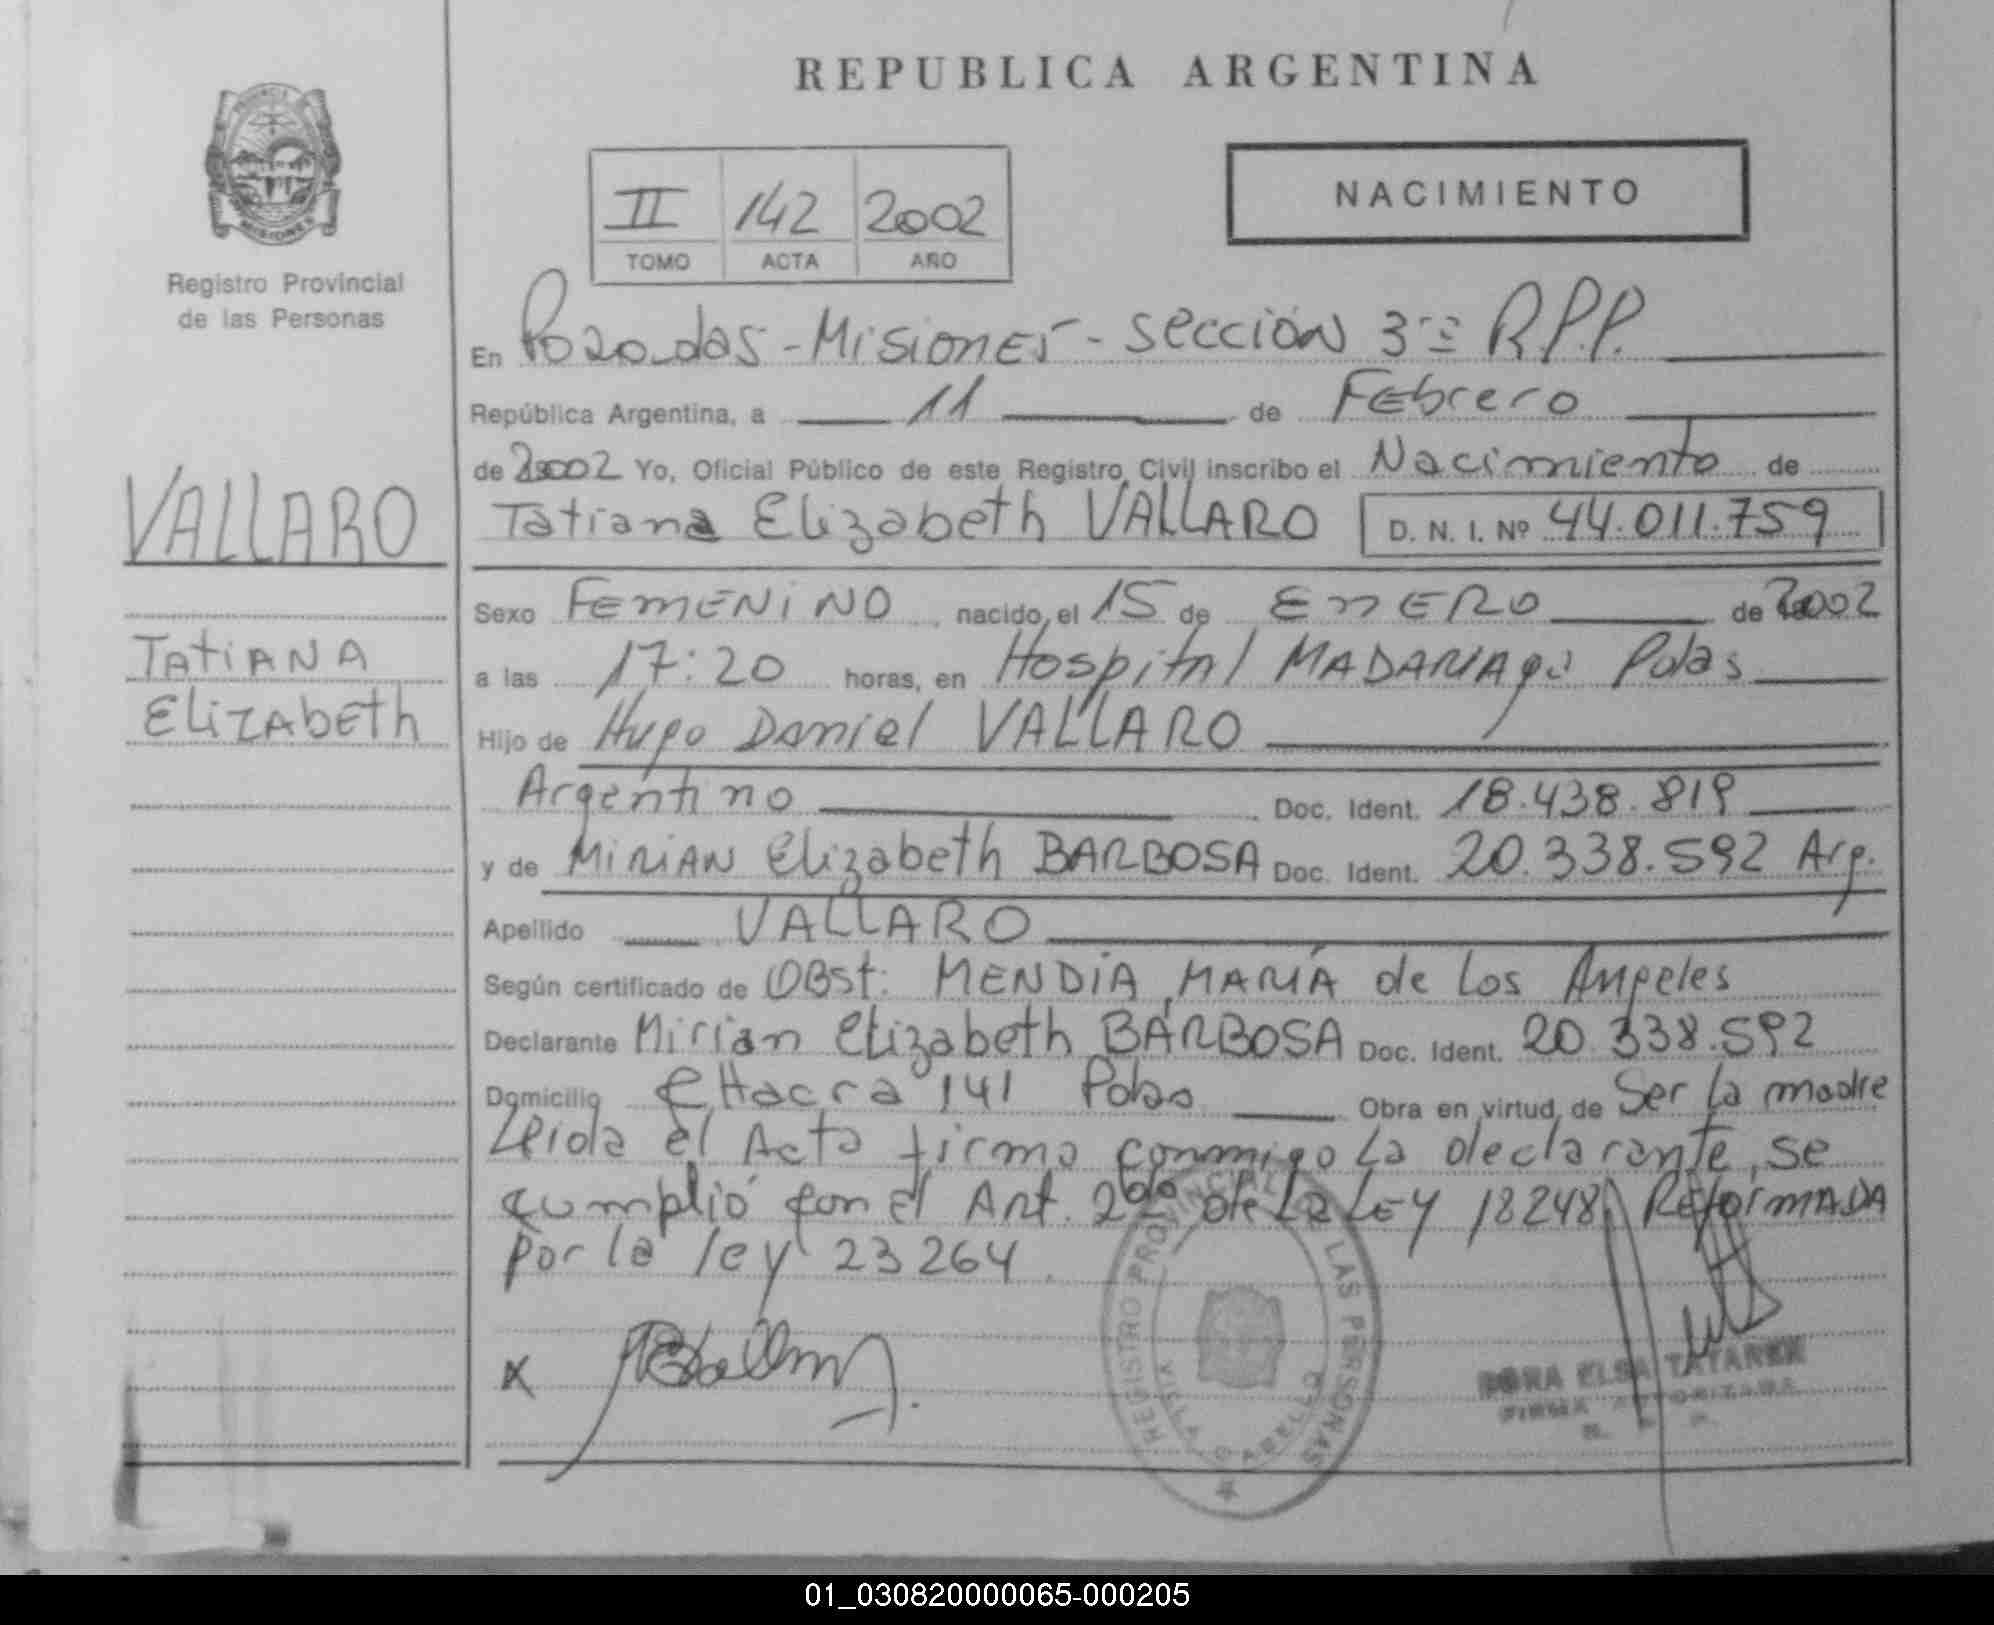 REPUBLICA ARGENTINA
PROVINCIA
MISIONES
Registro Provincial
de las Personas
II 142 2002
TOMO ACTA AÑO
NACIMIENTO
En Posadas - Misiones - sección 3ra R.P.P.
República Argentina, a 11 de Febrero
de 2002 Yo, Oficial Público de este Registro Civil inscribo el Nacimiento de
Tatiana Elizabeth VALLARO D. N. I. Nº 44.011.759
VALLARO
TATIANA
ELIZABETH
Sexo FEMENINO nacido el 15 de ENERO de 2002
a las 17:20 horas, en Hospital MADARIAga Pdas
Hijo de Hugo Daniel VALLARO
Argentino Doc. Ident. 18.438.819
y de MIRIAN Elizabeth BARBOSA Doc. Ident. 20.338.592 Arg.
Apellido VALLARO
Según certificado de OBst. MENDIA, MARIA de Los Angeles
Declarante Mirian Elizabeth BARBOSA Doc. Ident. 20.338.592
Domicilio CHacra 141 Pdas Obra en virtud de Ser la madre
Leida el Acta firma conmigo la declarante, se
cumplió con el Art. 2do de la Ley 18248 REformADA
por la ley 23264.
X
REGISTRO PROVINCIAL DE LAS PERSONAS
VILLA CABELLO
DORA ELSA TATAREN
FIRMA AUTORIZADA
01_030820000065-000205